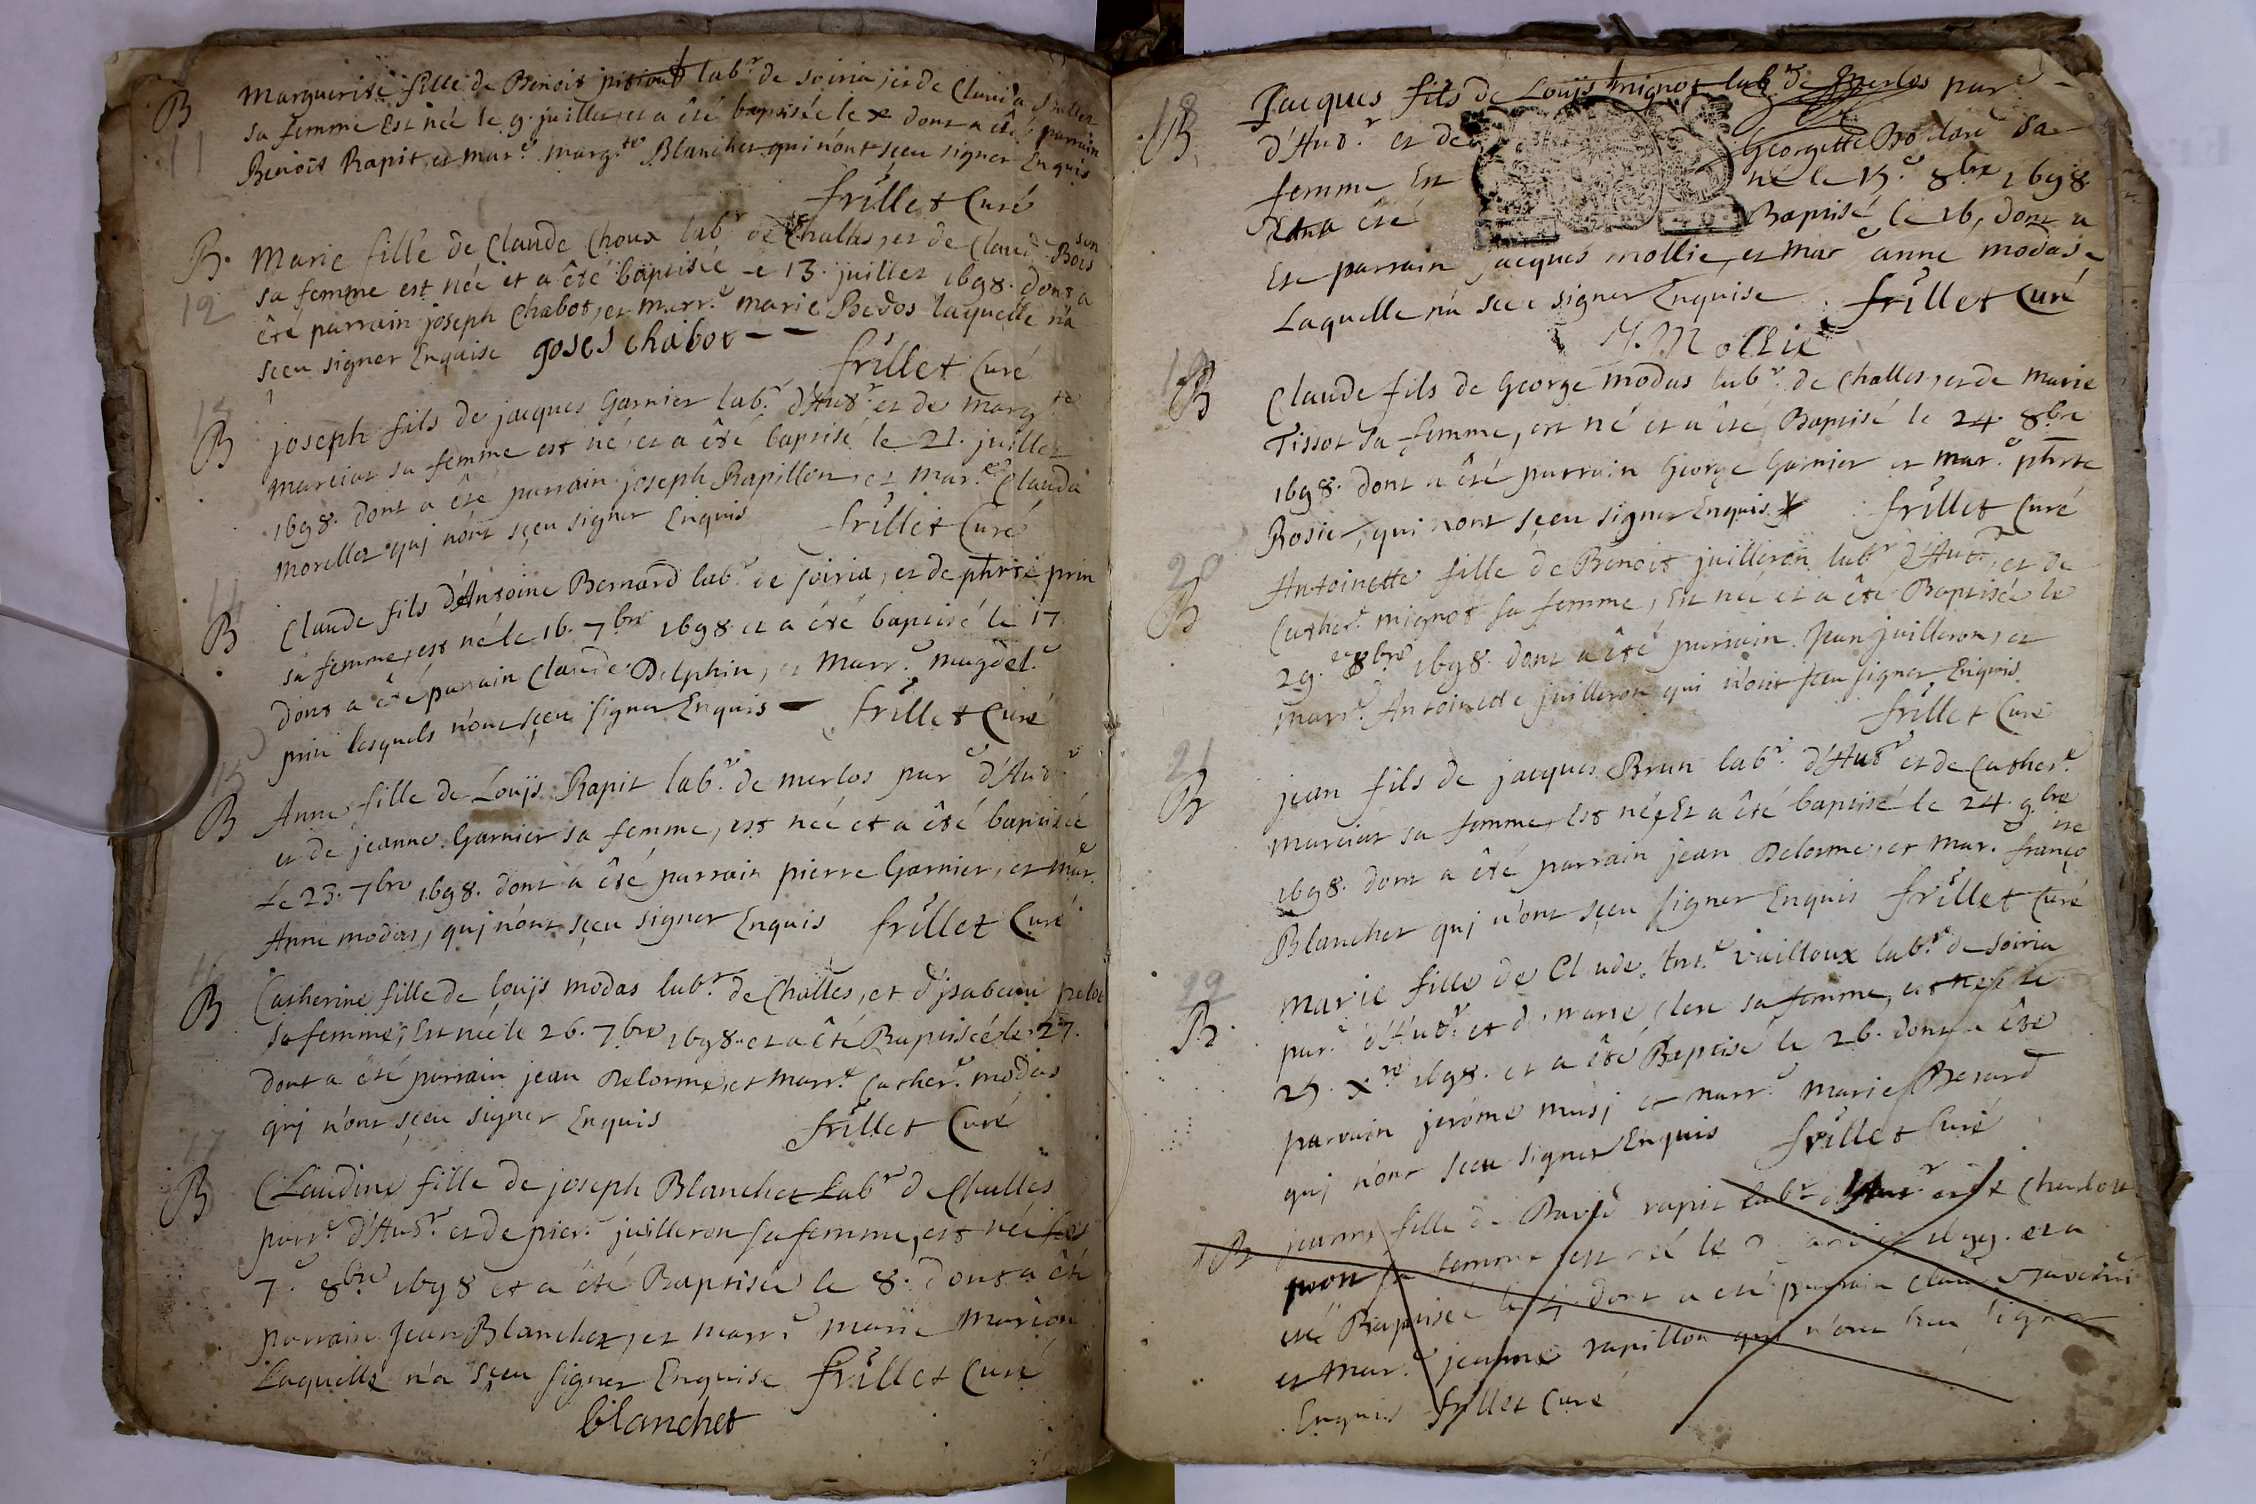 B
11
Marguerite fille de Benois pitiout lab.r de soiria, et de Claud.a
sa femme Est née le 9. juillet, et a êté baptisée le x dont a êté parrain
Benois Rapit, et mar.e marg.te Blanchet qui n'ont sçeu signer Enquis
frillet Curé
B.
12
Marie fille de Claude Choux lab.r de Challes, et de Claud. Bois
sa femme est née et a êté baptisée le 13. juillet 1698. dont a
êté parrain joseph Chabot, et marr.e marie Bedos laquelle n'a
sçeu signer Enquise joses chabot --
frillet Curé
13
B
joseph fils de jacques Garnier lab.r d'Aut.r et de marg.te
marciat sa femme est né et a êté baptisé le 21. juillet
1698. dont a êté parrain joseph Rapillon, et mar.e Claudia
morellet qui n'ont sçeu signer Enquis frillet Curé
14
B
Claude fils d'Antoine Bernard lab.r de soiria, et de phrte prin
sa femme, est né le 16. 7bre 1698 et a êté baptisé le 17
dont a êté parrain Claude Delphin, et Marr.e magdel.e
prin lesquels n'ont sçeu signer Enquis - frillet Curé
15
B
Anne fille de Loüjs Rapit lab.r de merlos par.e d'Aut.r
et de jeanne Garnier sa femme, est née et a êté baptisée
le 23. 7bre 1698. dont a êté parrain pierre Garnier, et mar.e
Anne modas, qui n'ont sçeu signer Enquis frillet Curé
16
B
Catherine fille de loüjs modas lab.r de Challes, et d'jsabeau
sa femme, Est née le 26. 7bre 1698. et a êté Baptisée le 27.
dont a êté parrain jean Delorme, et marr.e Cather.e modas
qui n'ont sçeu signer Enquis frillet Curé
17
B
Claudine fille de joseph Blanchet Lab.r de Challes
parr.e d'Aut.r et de pier.e juilleron sa femme, est née le
7.e 8bre 1698 et a êté Baptisée le 8. dont a êté
parrain Jean Blanchet, et marr.e marie Marion
Laquelle n'a sçeu signer Enquise frillet Curé
blanchet
18
B.
Jacques fils de Loüjs mignot lab.r de Merlos par.e
d'Aut.r et de Georgette sa
femme Est né le 15.e 8bre 1698
Et a êté Baptisé le 16, dont a
Esté parrain jacques mollie, et Mar.e anne modas
Laquelle n'a sceu signer Enquise frillet Curé
J. Mollie
19
B
Claude fils de George modas lab.r de Challes, et de marie
Tissot sa femme, est né et a êté Baptisé le 24. 8bre
1698. dont a êté parrain George Garnier et mar.e phrte
Rosier, qui n'ont sçeu signer Enquis frillet Curé
20
B
Antoinette fille de Benois juilleron lab.r d'Aut.r, et de
Cather.e mignot sa femme, Est née et a êté Baptisée le
29.e 8bre 1698. dont a êté parrain Jean juilleron, et
marr.e Antoinette juilleron qui n'ont sceu signer Enquis
frillet Curé
21
B
jean fils de jacques Brun lab.r d'Aut.r et de Cather.e
marciat sa femme, Est né, Et a êté baptisé le 24. 9bre
1698. dont a êté parrain jean Delorme, et mar.e françoise
Blanchet qui n'ont sçeu signer Enquis frillet Curé
22
B.
Marie fille de Claude vailloux lab.r de soiria
par.e d'Aut.r et de marie clere sa femme, est née le
25. Xre 1698. et a êté Baptisé le 26. dont a êté
parrain jerôme musj et marr.e Marie Besard
qui n'ont sçeu signer Enquis frillet Curé
B
jeanne fille de David rapit lab.r et de Charlotte
sa femme est née le 1699. et a
esté Baptisée le 4. dont a été parrain
et mar.e jeanne rapillon qui n'ont sceu signer
Enquis frillet Curé